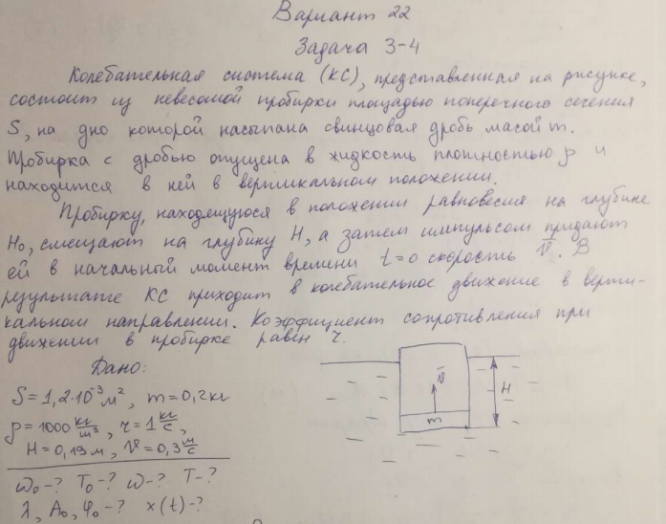 Вариант 22
Задача 3-4
Колебательная система (КС), представленная на рисунке,
состоит из невесомой пробирки площадью поперечного сечения
S, на дно которой насыпана свинцовая дробь масой m.
Пробирка с дробью опущена в жидкость плотностью ρ и
находится в ней в вертикальном положении.
Пробирку, находящуюся в положении равновесия на глубине
H₀, смещают на глубину H, а затем импульсом придают
ей в начальный момент времени t=0 скорость v̄. В
результате КС приходит в колебательное движение в верти-
кальном направлении. Коэффициент сопротивления при
движении в пробирке равен r.
Дано:
S=1,2·10⁻³ м², m=0,2кг
ρ=1000 кг/м³, r=1 кг/с,
H=0,19м, V=0,3 м/с
ω₀-? T₀-? ω-? T-?
λ, A₀, φ₀-? x(t)-?
v̄
H
m